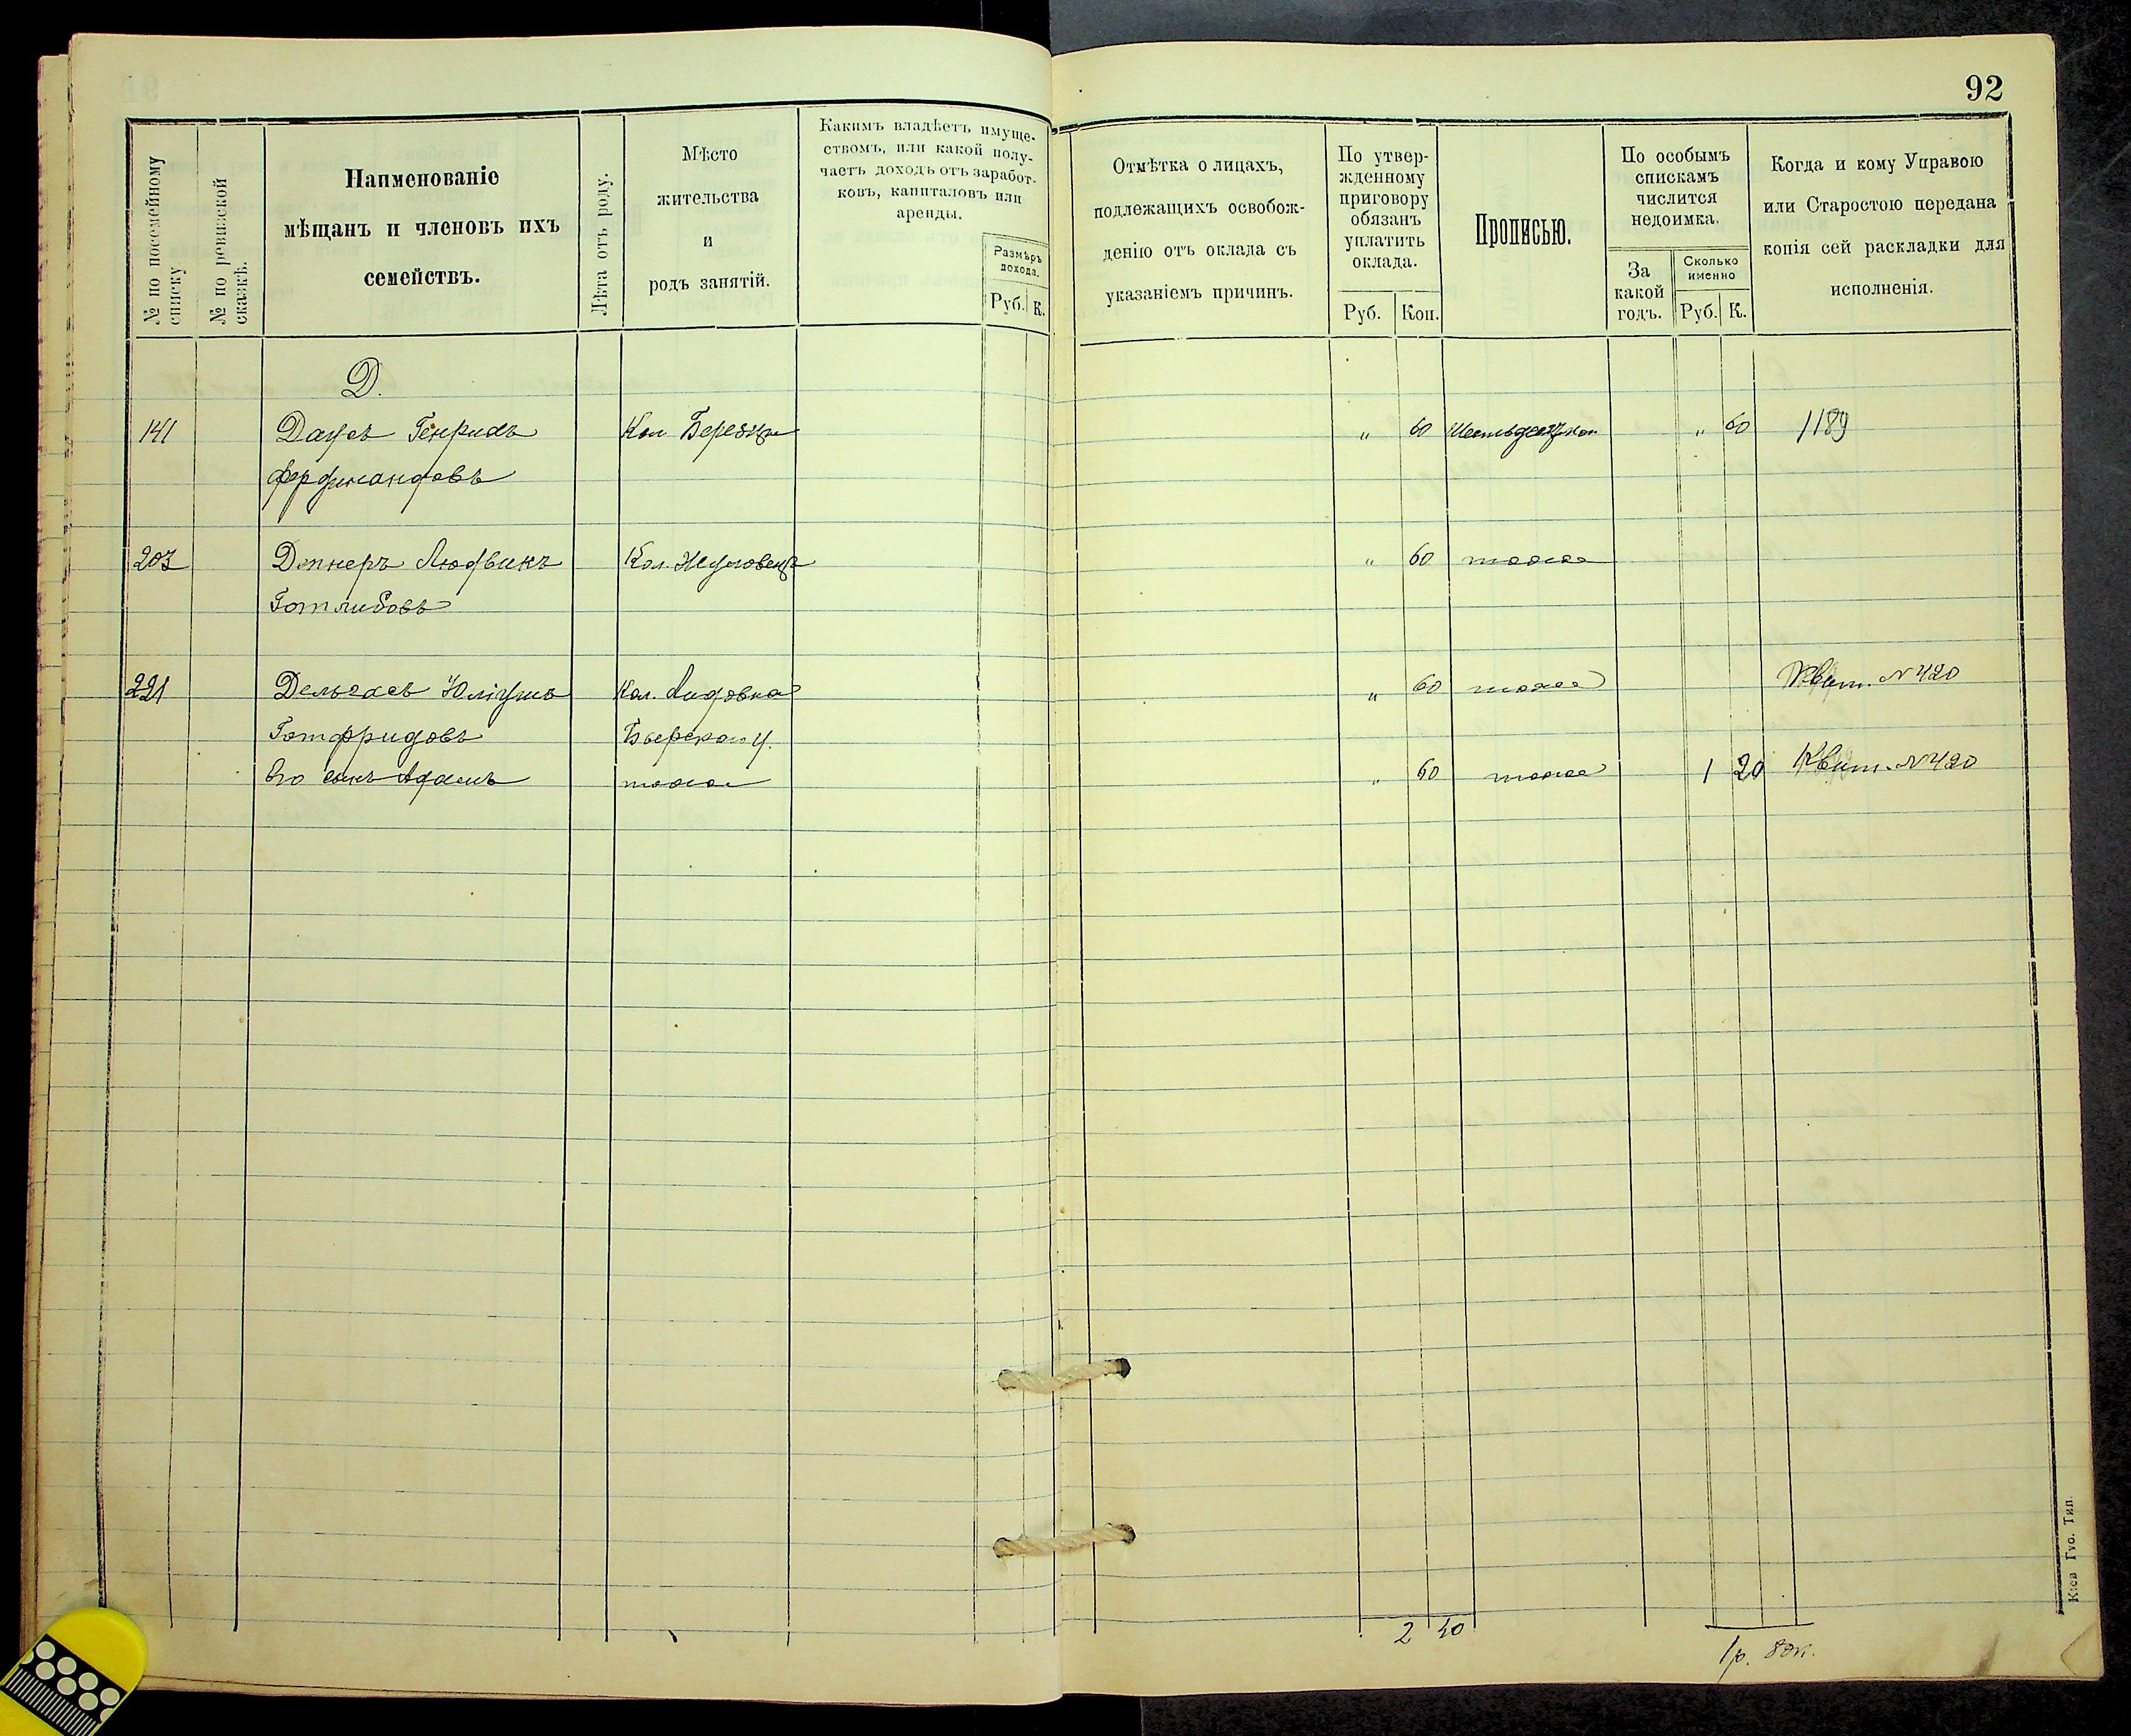 92
№ по посемейному списку
№ по ревизской сказкѣ.
Наименованіе
мѣщанъ и членовъ ихъ
семействъ.
Лѣта отъ роду.
Мѣсто
жительства
и
родъ занятій.
Какимъ владѣетъ имуще-
ствомъ, или какой полу-
чаетъ доходъ отъ заработ-
ковъ, капиталовъ или
аренды.
Размѣръ
дохода.
Руб. К.
Отмѣтка о лицахъ,
подлежащихъ освобож-
денію отъ оклада съ
указаніемъ причинъ.
По утвер-
жденному
приговору
обязанъ
уплатить
оклада.
Руб. Коп.
Прописью.
По особымъ
спискамъ
числится
недоимка.
За
какой
годъ.
Сколько
именно
Руб. К.
Когда и кому Управою
или Старостою передана
копія сей раскладки для
исполненія.
Д.
141 Даусъ Генрихъ Кол. " 60 " 60 1189
Фердинандовъ
203 Людвикъ Кол. " 60 тоже
Готлибовъ
221 Юліушъ Кол. Лидовка " 60 тоже Квит. № 420
Готфридовъ
Его сынъ Адамъ тоже " 60 тоже 1 20 Квит. № 420
2 40
1р. 80к.
Кіев Губ. Тип.